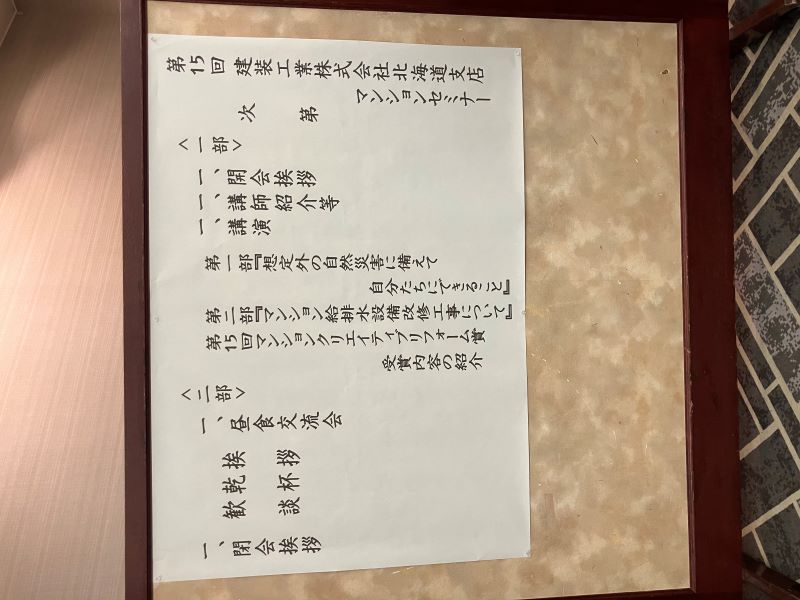 第15回 建装工業株式会社北海道支店
マンションセミナー
次 第
〈一部〉
一、開会挨拶
一、講師紹介等
一、講演
第一部『想定外の自然災害に備えて
自分たちにできること』
第二部『マンション給排水設備改修工事について』
第15回マンションクリエイティブリフォーム賞
受賞内容の紹介
〈二部〉
一、昼食交流会
挨拶
乾杯
歓談
一、閉会挨拶